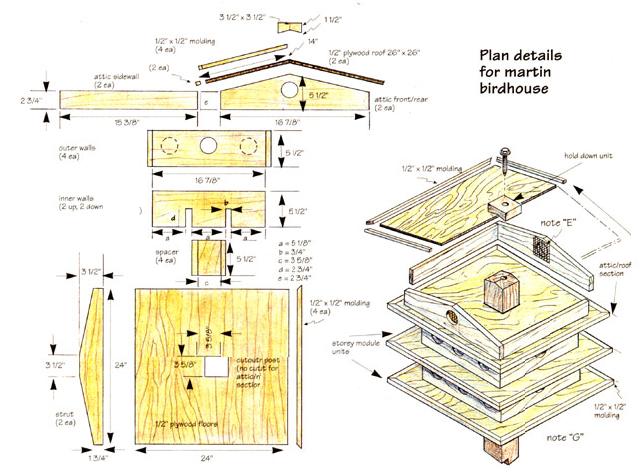 Plan details
for martin
birdhouse
3 1/2" x 3 1/2"
1 1/2"
1/2" x 1/2" molding
(4 ea)
14"
1/2" plywood roof 26" x 26"
(2 ea)
(2 ea)
attic sidewall
(2 ea)
2 3/4"
e
5 1/2"
attic front/rear
(2 ea)
15 3/8"
16 7/8"
outer walls
(4 ea)
5 1/2"
16 7/8"
inner walls
(2 up, 2 down
)
b
d
5 1/2"
a
a
a
spacer
(4 ea)
5 1/2"
c
a = 5 1/8"
b = 3/4"
c = 3 5/8"
d = 2 3/4"
e = 2 3/4"
3 1/2"
3 1/2"
24"
strut
(2 ea)
1 3/4"
3 5/8"
3 5/8"
cutout post
(no cut for
attic
section
1/2" plywood floors
24"
1/2" x 1/2" molding
(4 ea)
hold down unit
1/2" x 1/2" molding
note "E"
attic/roof
section
storey module
units
1/2" x 1/2"
molding
note "G"